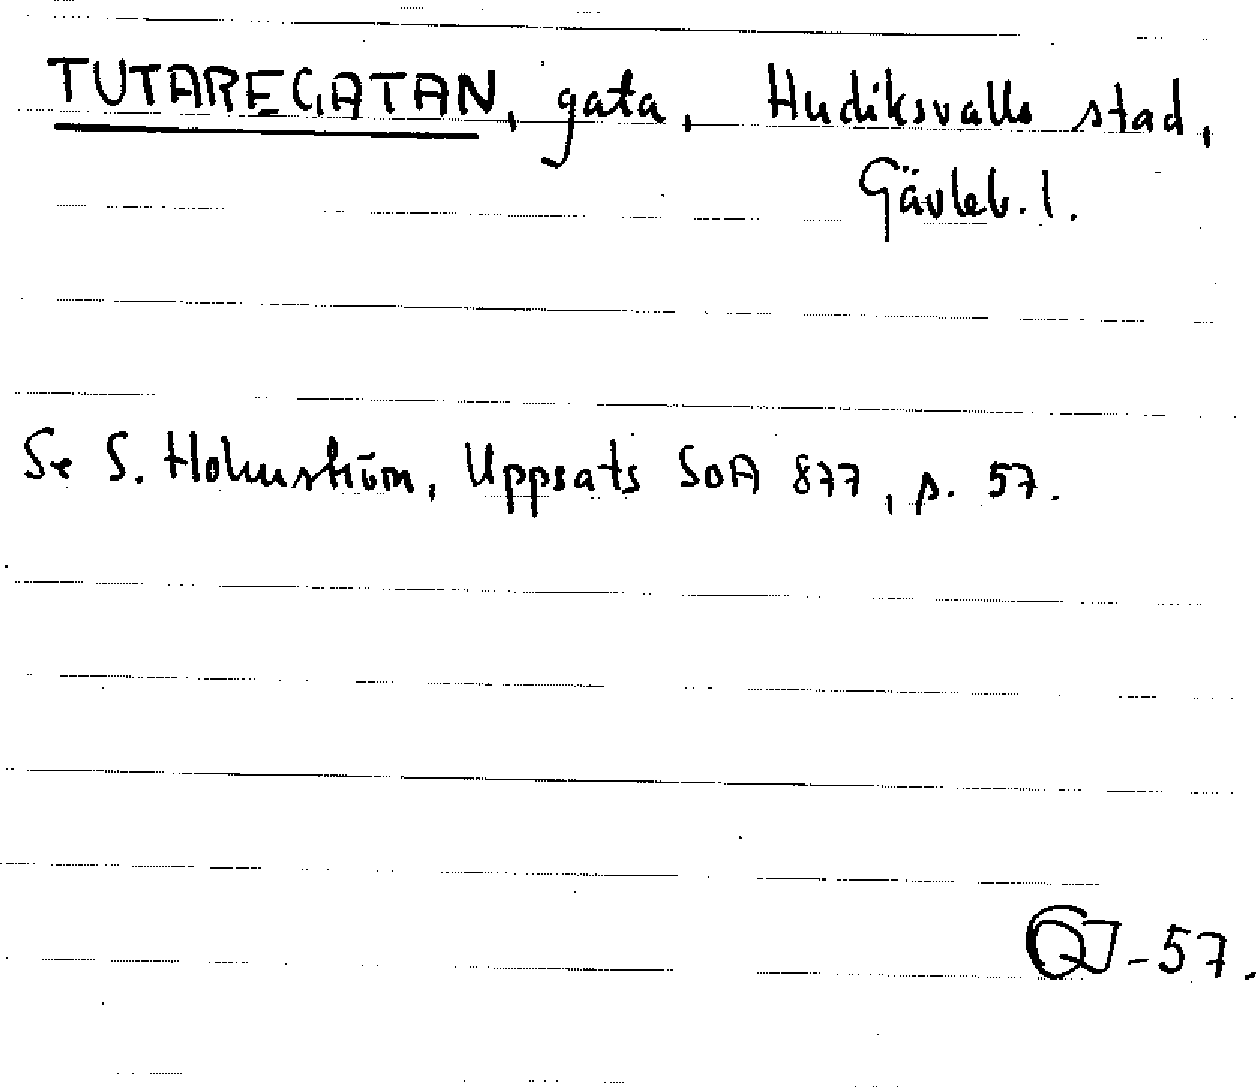 TUTAREGATAN, gata, Hudiksvalls stad,
Gävleb. l.
Se S. Holmström, Uppsats SOA 877, s. 57.
-57.